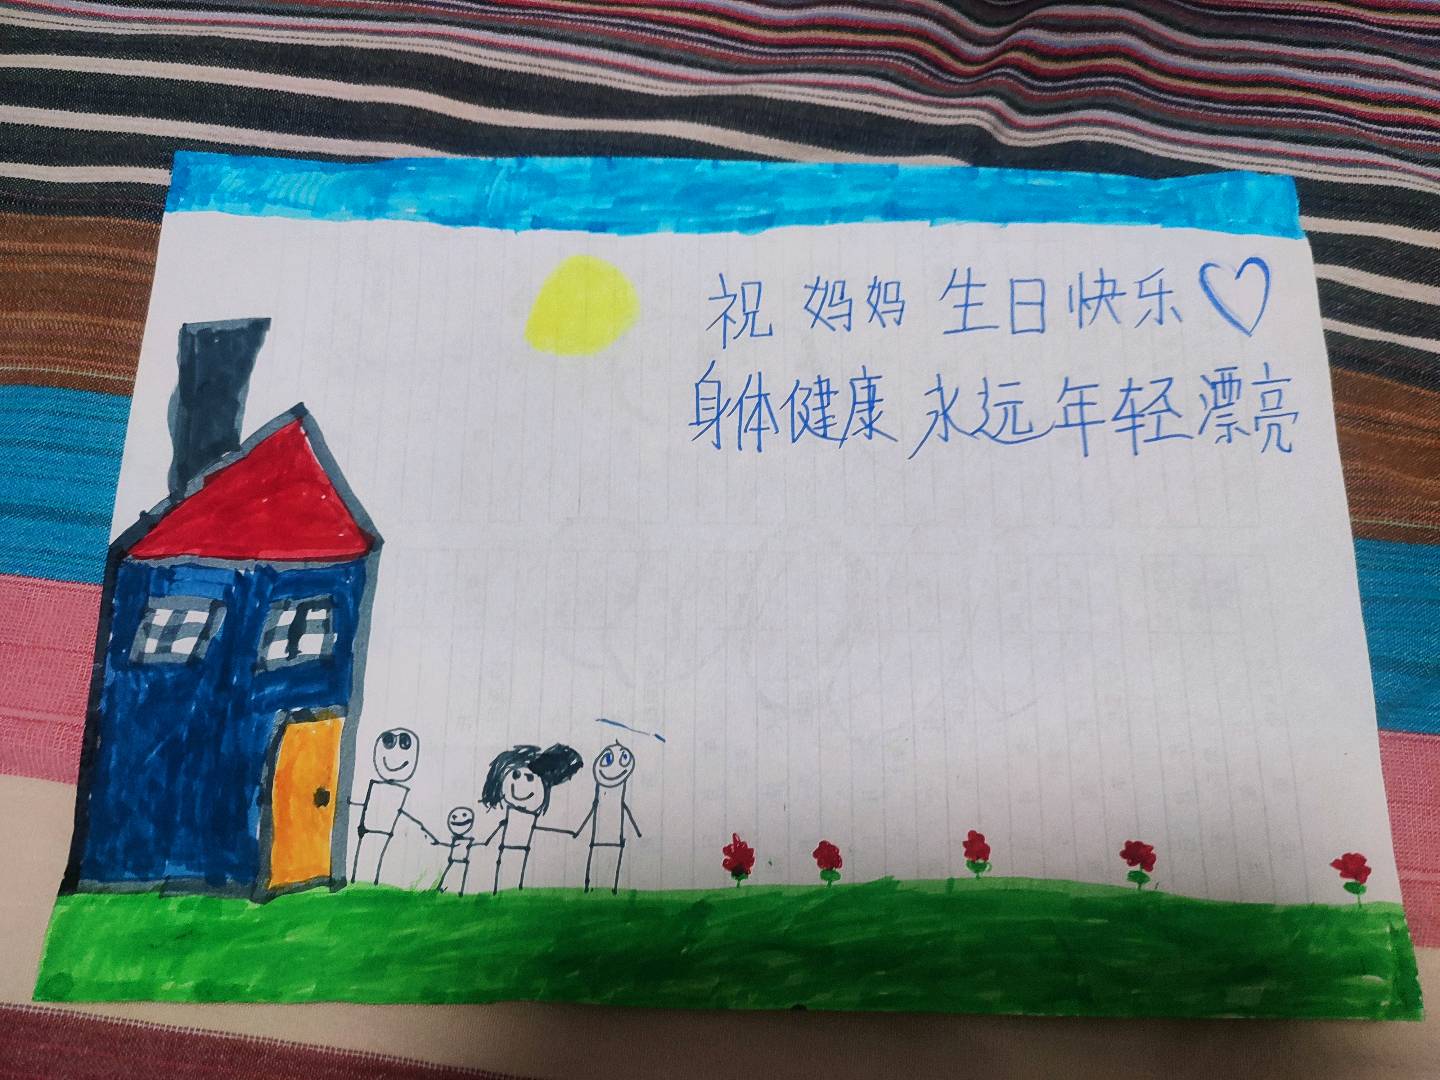 祝 妈妈 生日快乐
身体健康 永远年轻漂亮